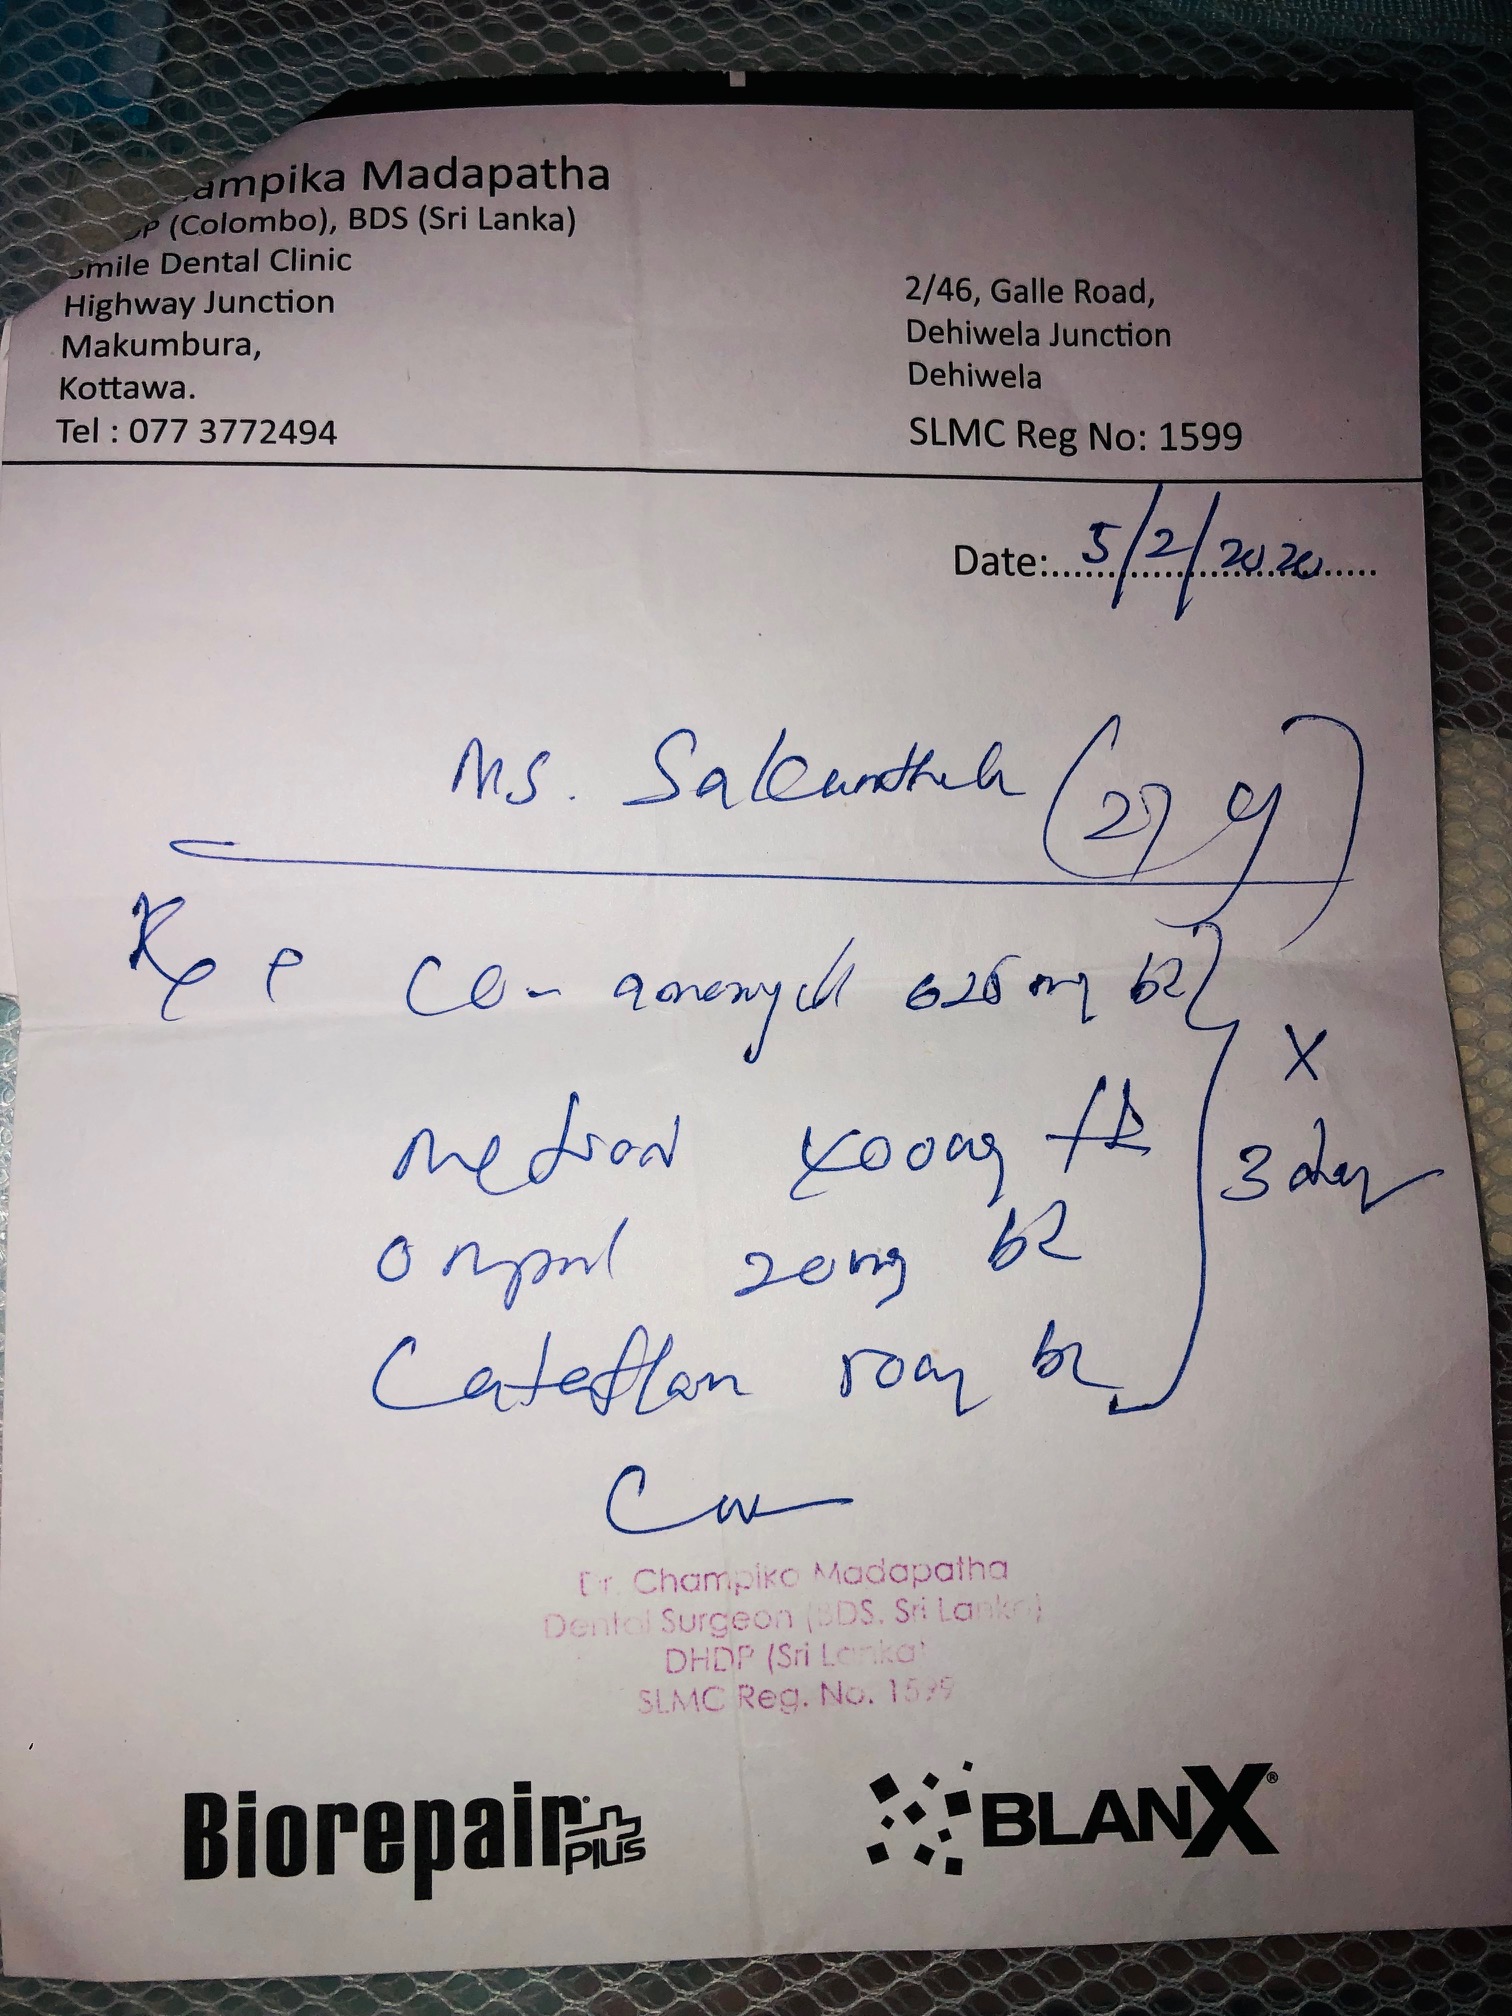 ampika Madapatha
DP (Colombo), BDS (Sri Lanka)
Smile Dental Clinic
Highway Junction
Makumbura,
Kottawa.
Tel : 077 3772494
2/46, Galle Road,
Dehiwela Junction
Dehiwela
SLMC Reg No: 1599
Date: 5/2/2020
Ms. Sakunthala (27 y)
Co-amoxycll 625mg
400mg
20mg
X
3 day
Dr. Champika Madapatha
Dental Surgeon (BDS. Sri Lanka)
DHDP (Sri Lanka)
SLMC Reg. No. 1599
Biorepair Plus
BLANX®